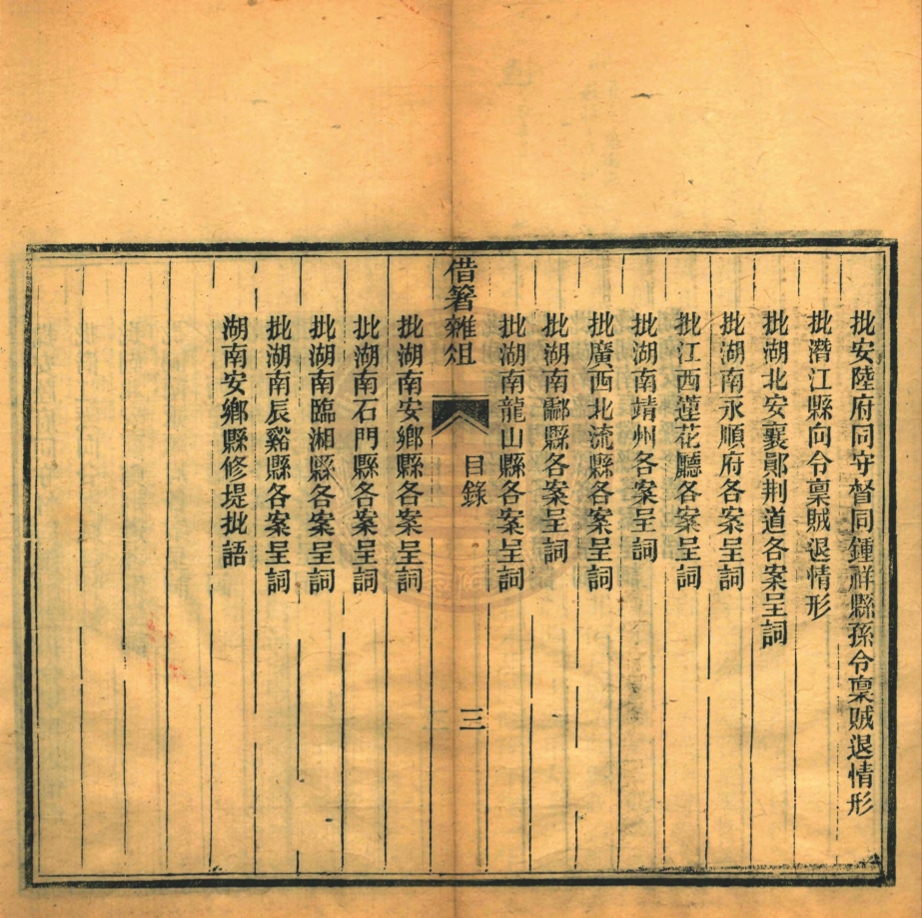 批安陸府同守督同鍾祥縣孫令稟賊退情形
批潛江縣向令稟賊退情形
批湖北安襄鄖荆道各案呈詞
批湖南永順府各案呈詞
批江西蓮花廳各案呈詞
批湖南靖州各案呈詞
批廣西北流縣各案呈詞
批湖南酃縣各案呈詞
批湖南龍山縣各案呈詞
借箸雜俎
目錄
三
批湖南安鄉縣各案呈詞
批湖南石門縣各案呈詞
批湖南臨湘縣各案呈詞
批湖南辰谿縣各案呈詞
湖南安鄉縣修堤批語